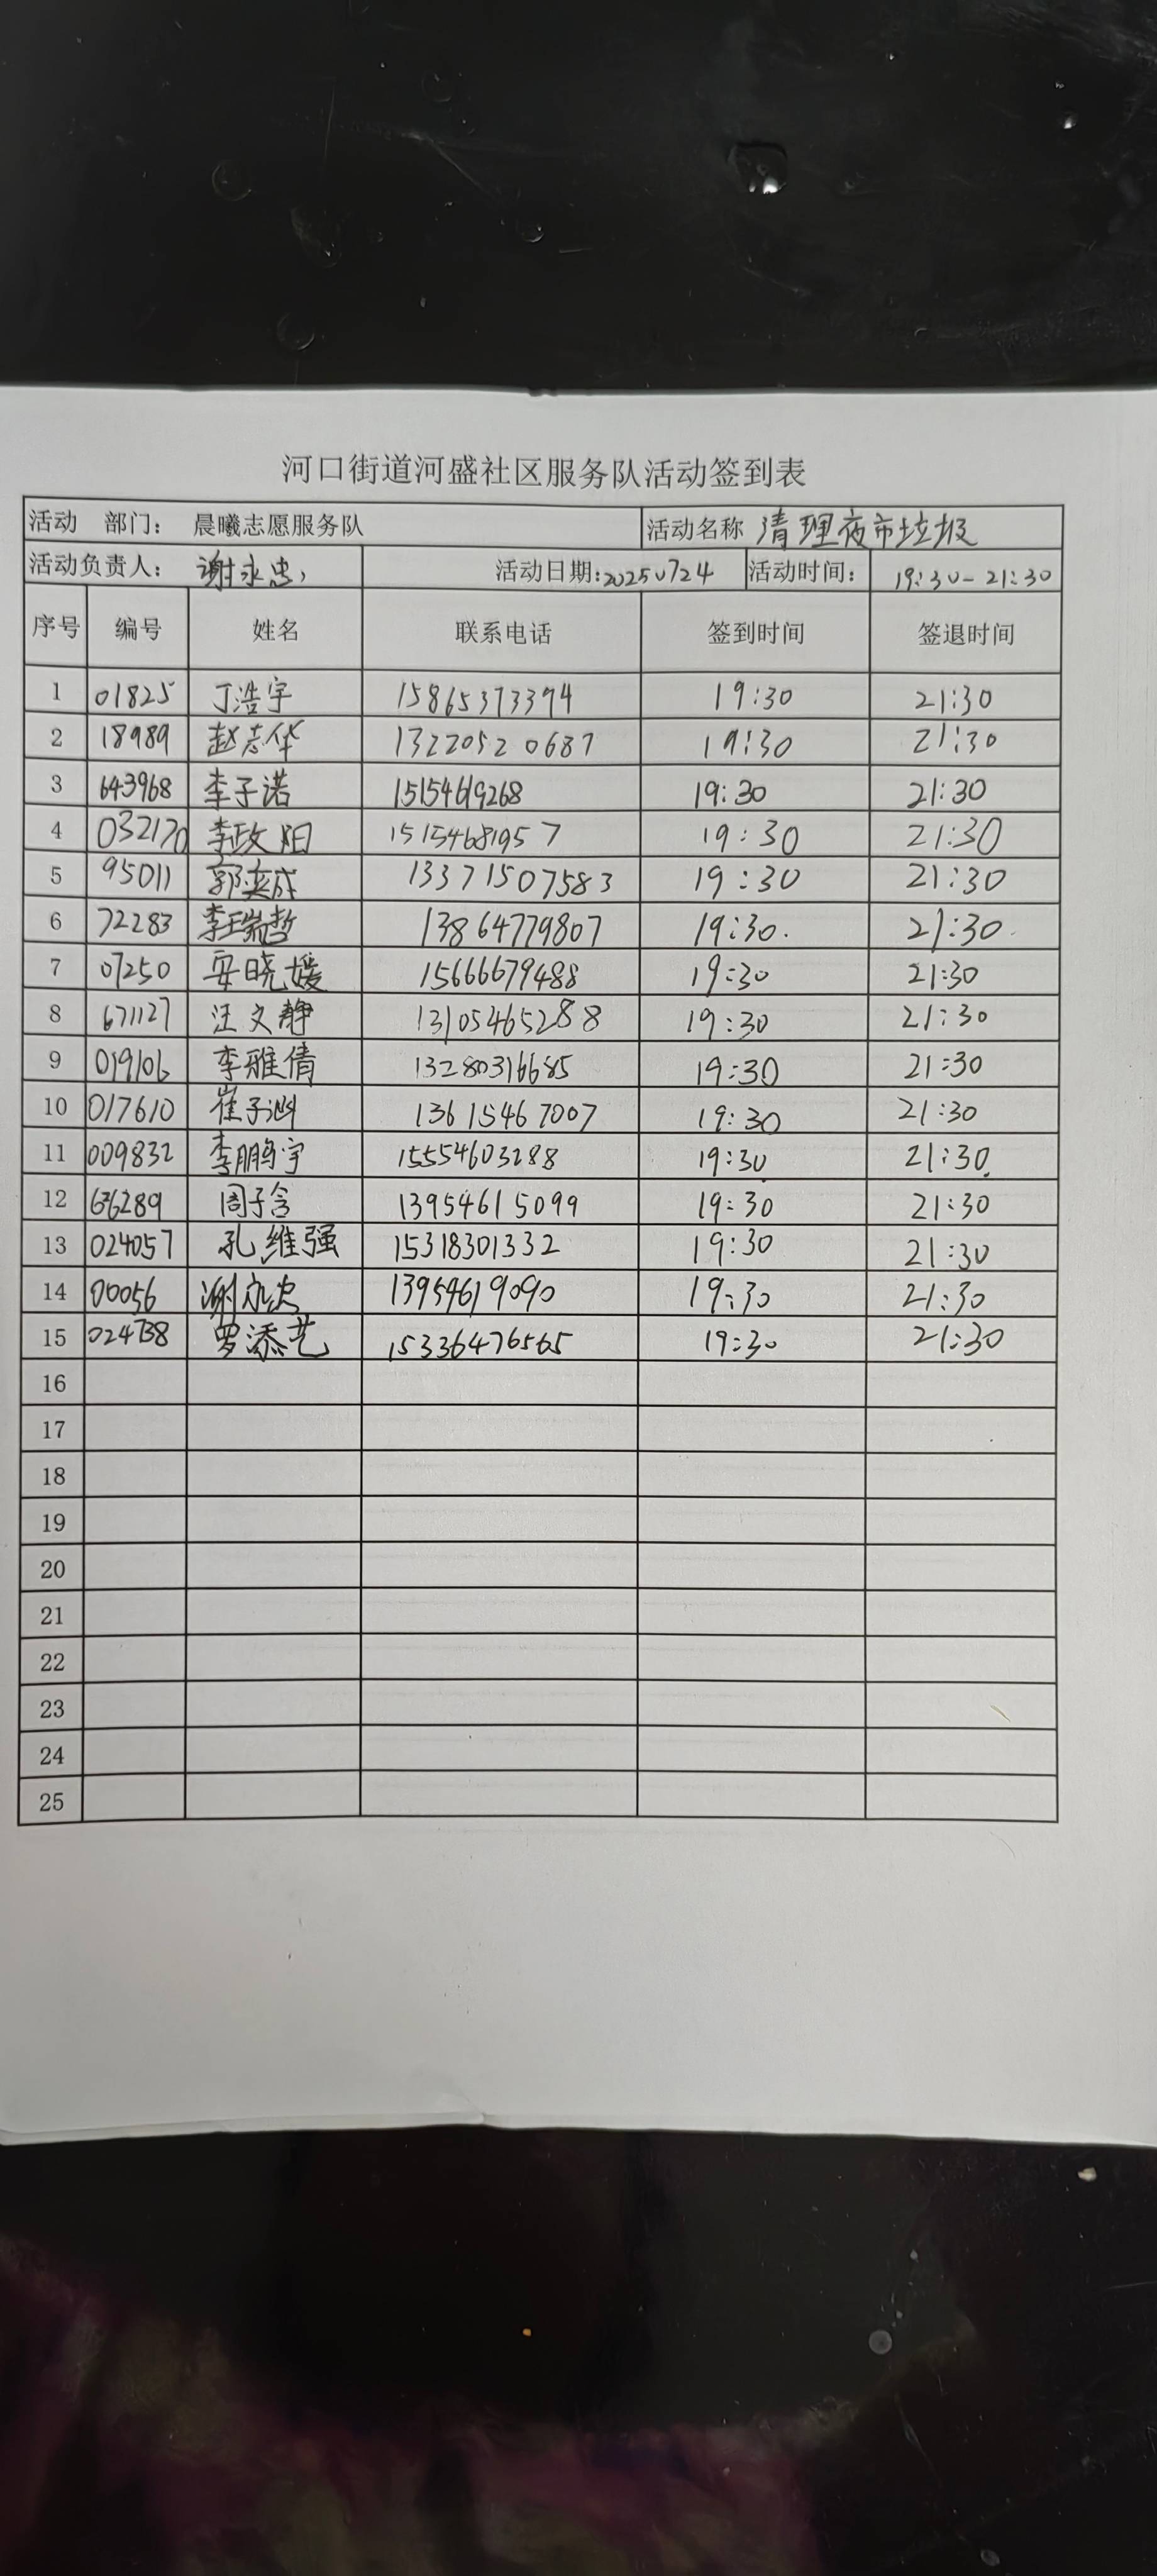 河口街道河盛社区服务队活动签到表
活动 部门： 晨曦志愿服务队 活动名称 清理夜市垃圾
活动负责人： 谢永忠 活动日期：20250724 活动时间： 19:30-21:30
序号 编号 姓名 联系电话 签到时间 签退时间
1 01825 丁浩宇 15865373394 19:30 21:30
2 18989 赵志华 13220520687 19:30 21:30
3 643968 李子诺 15154619268 19:30 21:30
4 032170 李政阳 15154681957 19:30 21:30
5 95011 郭奕成 13371507583 19:30 21:30
6 72283 李瑞哲 13864779807 19:30. 21:30.
7 07250 安晓媛 15666679488 19:30 21:30
8 671127 汪文静 13105465288 19:30 21:30
9 019106 李雅倩 13280316685 19:30 21:30
10 017610 崔子 13615467007 19:30 21:30
11 009832 李鹏宇 15554603288 19:30 21:30.
12 636289 周子含 13954615099 19:30 21:30
13 024057 孔维强 15318301332 19:30 21:30
14 00056 谢永忠 13954619090 19:30 21:30
15 024738 罗添艺 15336476565 19:30 21:30
16
17
18
19
20
21
22
23
24
25